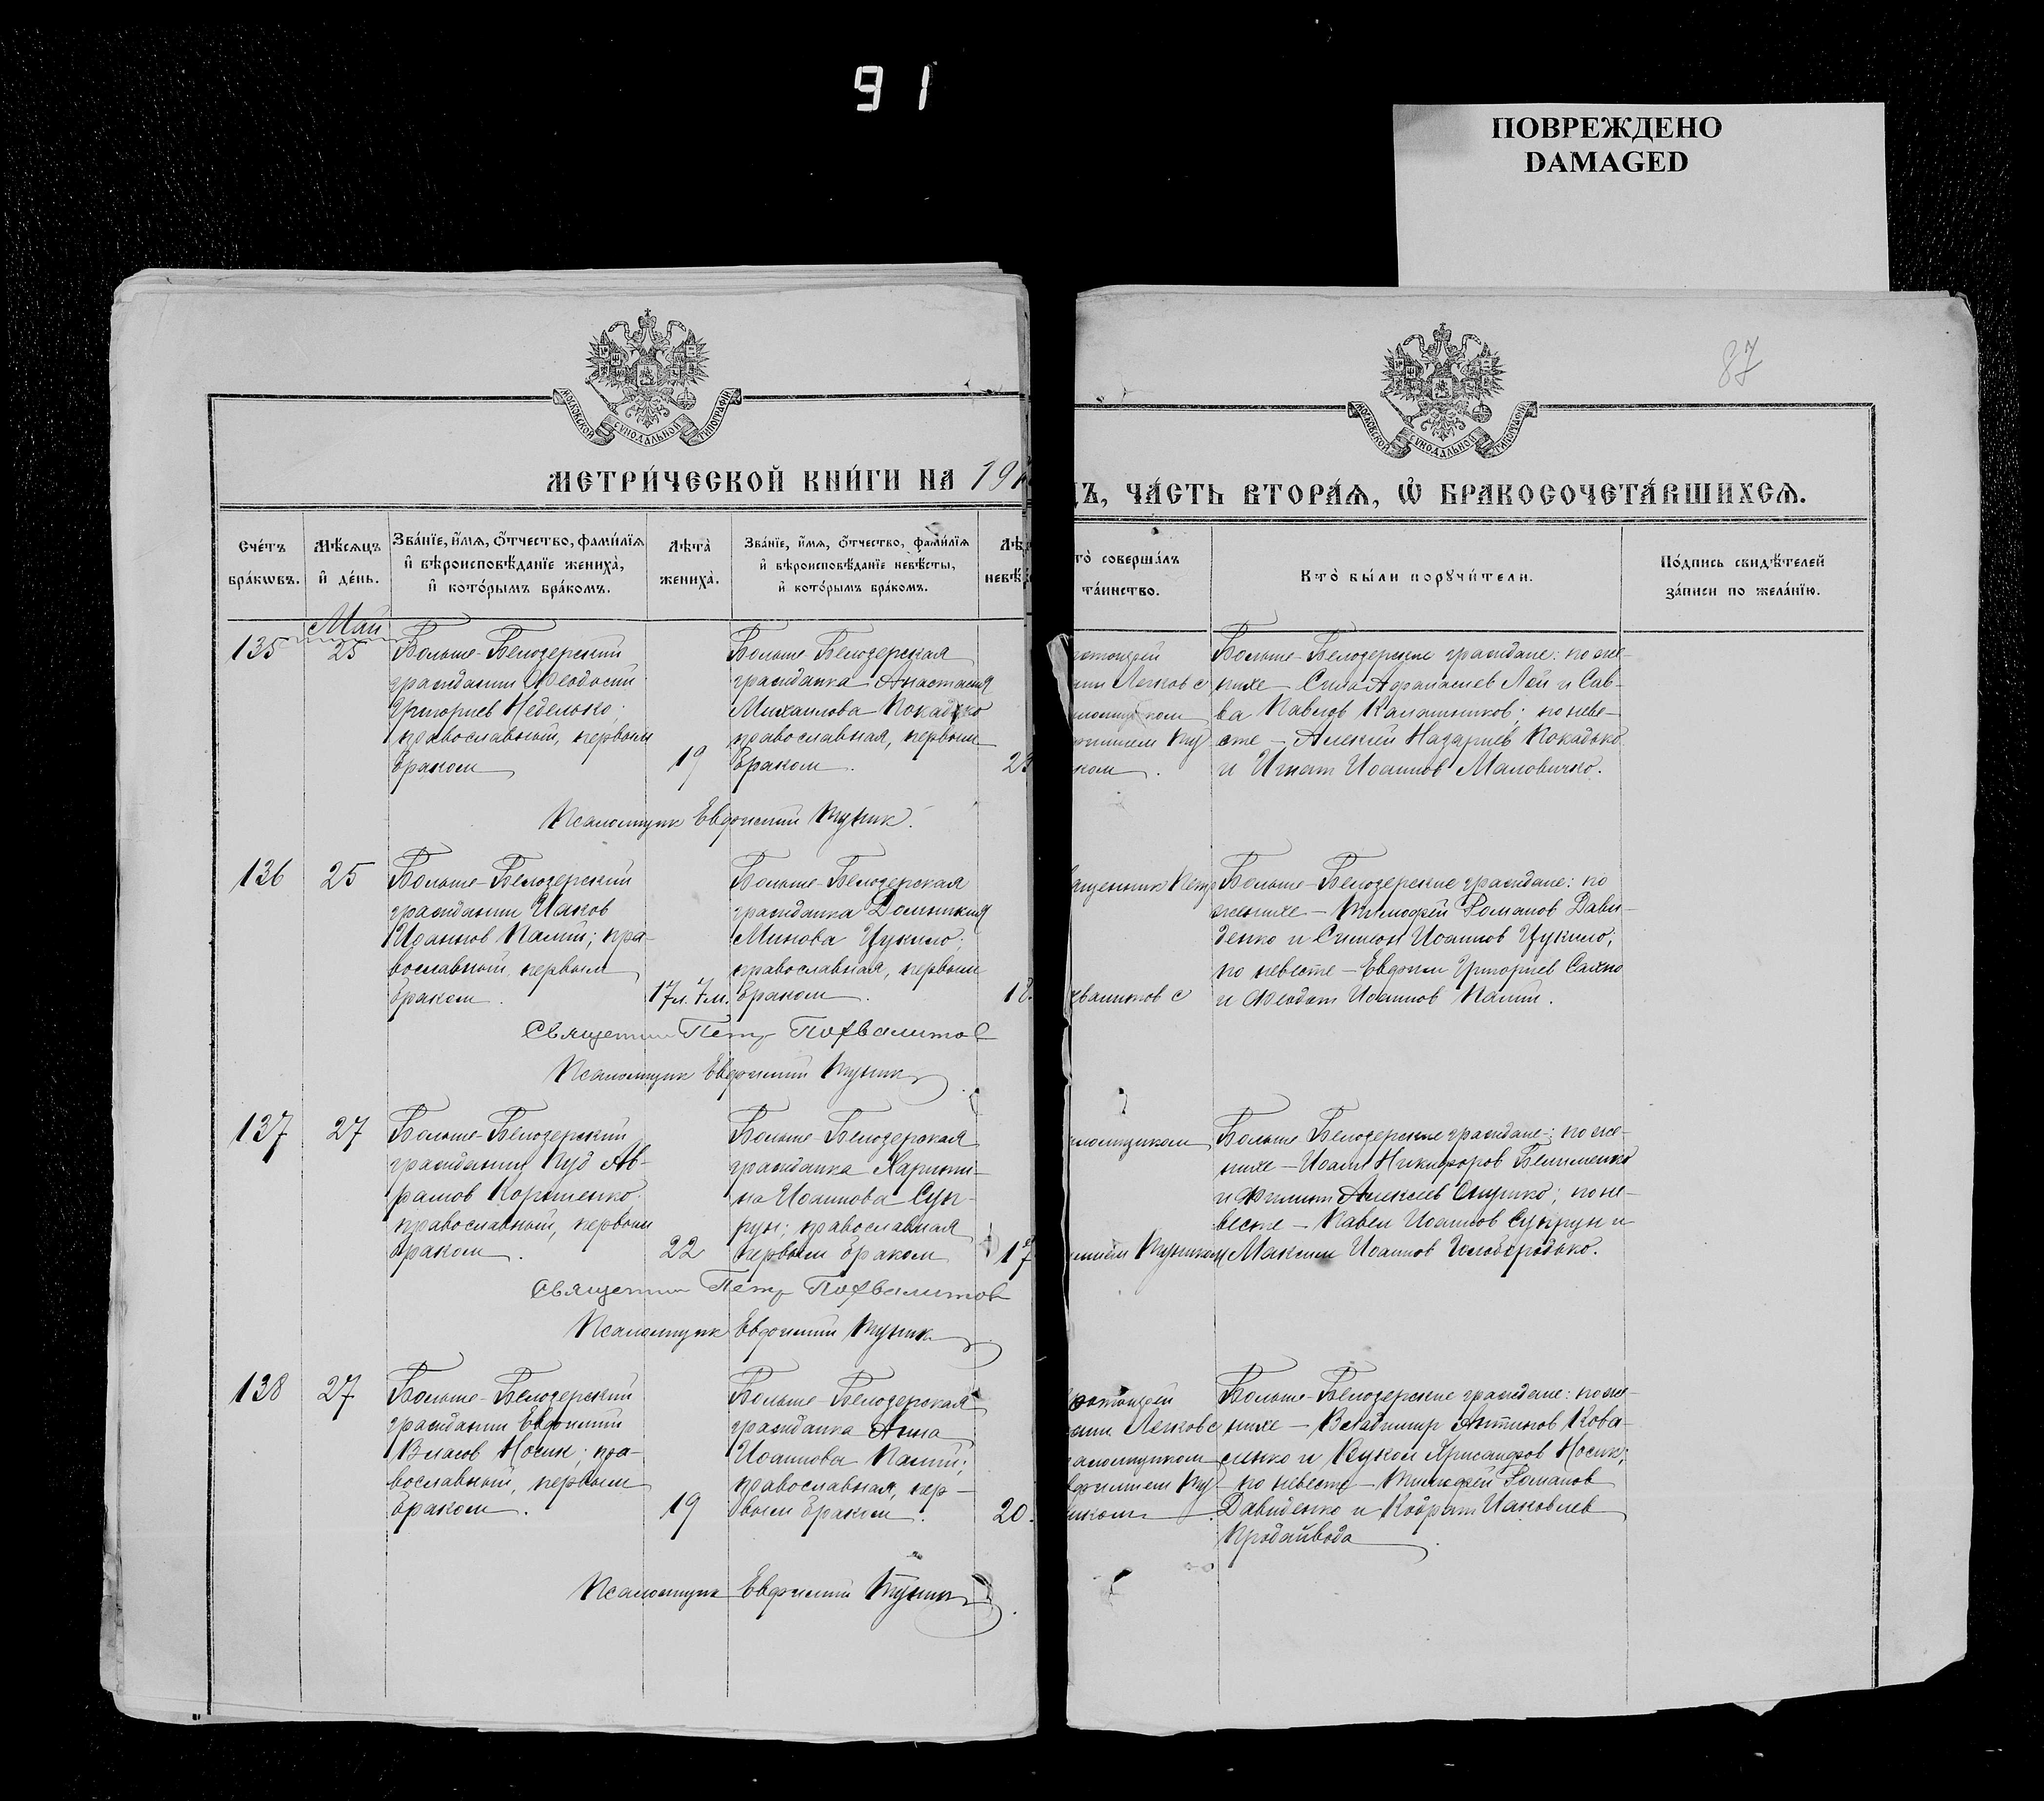 91
ПОВРЕЖДЕНО
DAMAGED
87
МОСКОВСКОЙ СѴНОДАЛЬНОЙ ТИПОГРАФІИ
МОСКОВСКОЙ СѴНОДАЛЬНОЙ ТИПОГРАФІИ
МЕТРИ́ЧЕСКОЙ КНИ́ГИ НА 191
Ъ, ЧА́СТЬ ВТОРА́Ѧ, Ѽ БРАКОСОЧЕТА́ВШИХСѦ.
Сче́тъ бра́кѡвъ.
Мѣ́сѧцъ и҆ де́нь.
Зва́нїе, и҆́мѧ, ѻ҆́тчество, фами́лїѧ
и҆ вѣроисповѣ́данїе жениха̀,
и҆ кото́рымъ бра́комъ.
Лѣта̀ жениха̀.
Зва́нїе, и҆́мѧ, ѻ҆́тчество, фами́лїѧ
и҆ вѣроисповѣ́данїе невѣ́сты,
и҆ кото́рымъ бра́комъ.
Лѣ
невѣ
то̀ соверша́лъ
та́инство.
Кто̀ бы́ли порꙋчи́тели.
По́дпись свидѣ́телей
за́писи по жела́нїю.
Май
135
25
Больше-Белозерский
гражданин Феодосий
Григориев Неделько;
православный, первым
браком
19
Больше-Белозерская
гражданка Анастасия
Михаилова Кокадько
православная, первым
браком.
2
Легков с
ком.
Больше-Белозерские граждане: по же-
нихе — Сила Афанасиев Лой и Сав-
ва Павлов Калашников; по неве-
сте — Алексей Назариев Кокадько
и Игнат Иоаннов Маловичко.
Псаломщик Евфимий Куник.
136
25
Больше-Белозерский
гражданин Иаков
Иоаннов Палий; пра-
вославный, первым
браком.
17 л. 7 м.
Больше-Белозерская
гражданка Домникия
Минова Цукило;
православная, первым
браком.
18
ященник Петр
хвалитов с
Больше-Белозерские граждане: по
женихе — Тимофей Романов Дави-
денко и Симеон Иоаннов Цукило;
по невесте — Евфим Григориев Сахно
и Феодот Иоаннов Палий.
Священник Петр Похвалитов
Псаломщик Евфимий Куник
137
27
Больше-Белозерский
гражданин Куд Ав-
рамов Корниенко
православный, первым
браком.
22
Больше-Белозерская
гражданка Харити-
на Иоаннова Суп-
рун; православная
первым браком
17
ломщиком
имием Куником
Больше Белозерские граждане: по же-
нихе — Иоанн Никифоров Белименко
и Филипп Алексеев Скупко; по не-
весте — Павел Иоаннов Супрун и
Максим Иоаннов Голобородько.
Священник Петр Похвалитов
Псаломщик Евфимий Куник
138
27
Больше-Белозерский
гражданин Евфимий
Власов Носик; пра-
вославный, первым
браком.
19
Больше-Белозерская
гражданка Анна
Иоаннова Палий;
православная, пер-
вым браком.
20.
Легков с
аломщиком
вфимием Ку-
ником
Больше-Белозерские граждане: по же-
нихе — Владимир Антипов Кова-
ленко и Хрисанфов Носик;
по невесте — Тимофей Романов
Давиденко и Кодрат Иаковлев
Продайвода
Псаломщик Евфимий Куник